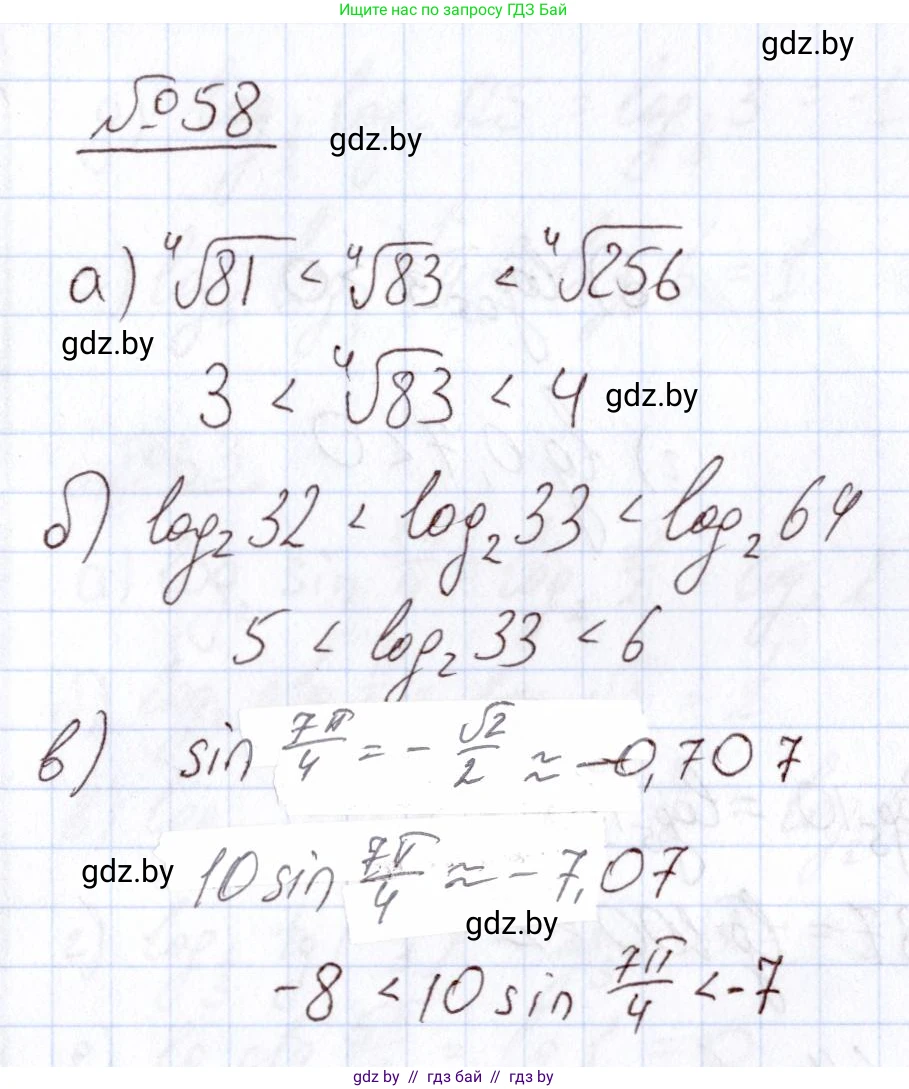 Ищите нас по запросу ГДЗ Бай
gdz.by
№58
gdz.by
а) ⁴√81 < ⁴√83 < ⁴√256
gdz.by
3 < ⁴√83 < 4
gdz.by
б) log₂32 < log₂33 < log₂64
5 < log₂33 < 6
в) sin 7π/4 = - √2/2 ≈ -0,707
gdz.by
10 sin 7π/4 ≈ - 7,07
gdz.by
-8 < 10 sin 7π/4 < -7
gdz.by // гдз бай // гдз by